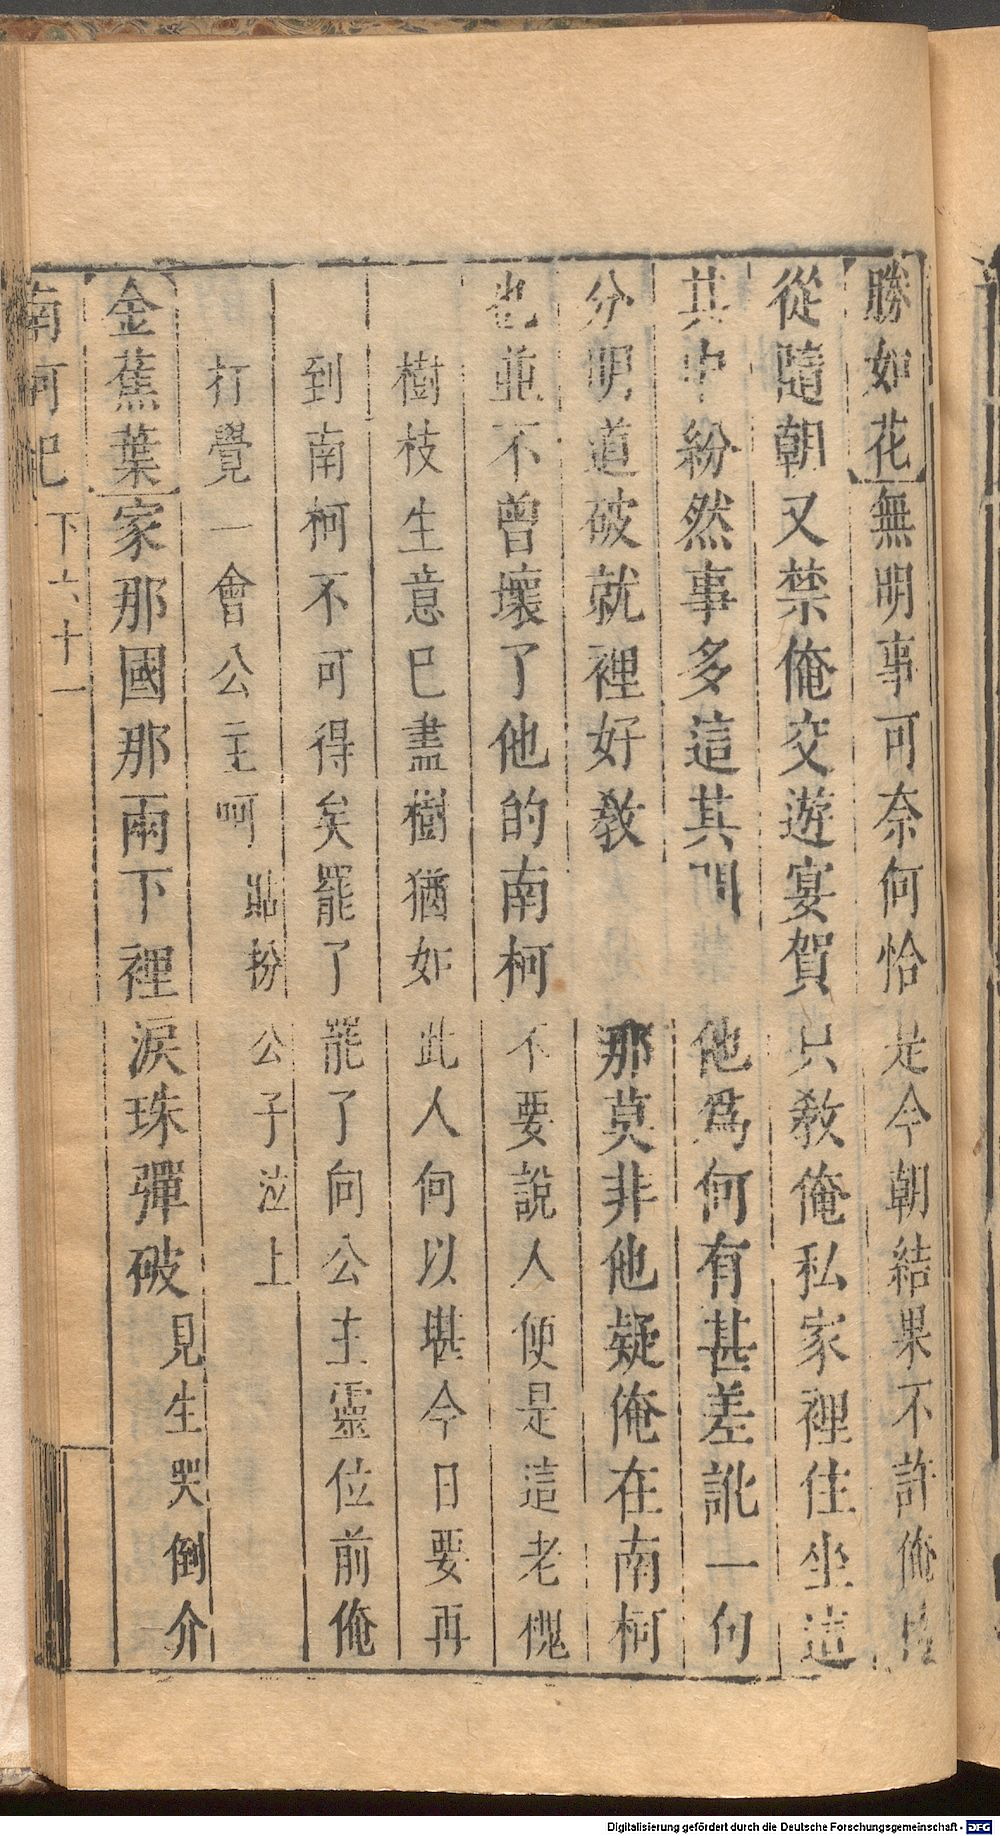 勝如花無明事可奈何恰是今朝結果不許俺
從隨朝又禁俺交遊宴賀只教俺私家裡住坐這
其中紛然事多這其間他爲何有甚差訛一句
分明道破就裡好教那莫非他疑俺在南柯
也並不曾壞了他的南柯不要說人便是這老槐
樹枝生意已盡樹猶如此人何以堪今日要再
到南柯不可得矣罷了罷了向公主靈位前俺
打覺一會公主呵貼扮公子泣上
金蕉葉家那國那兩下裡淚珠彈破見生哭倒介
南柯記 下 六十一
Digitalisierung gefördert durch die Deutsche Forschungsgemeinschaft - DFG